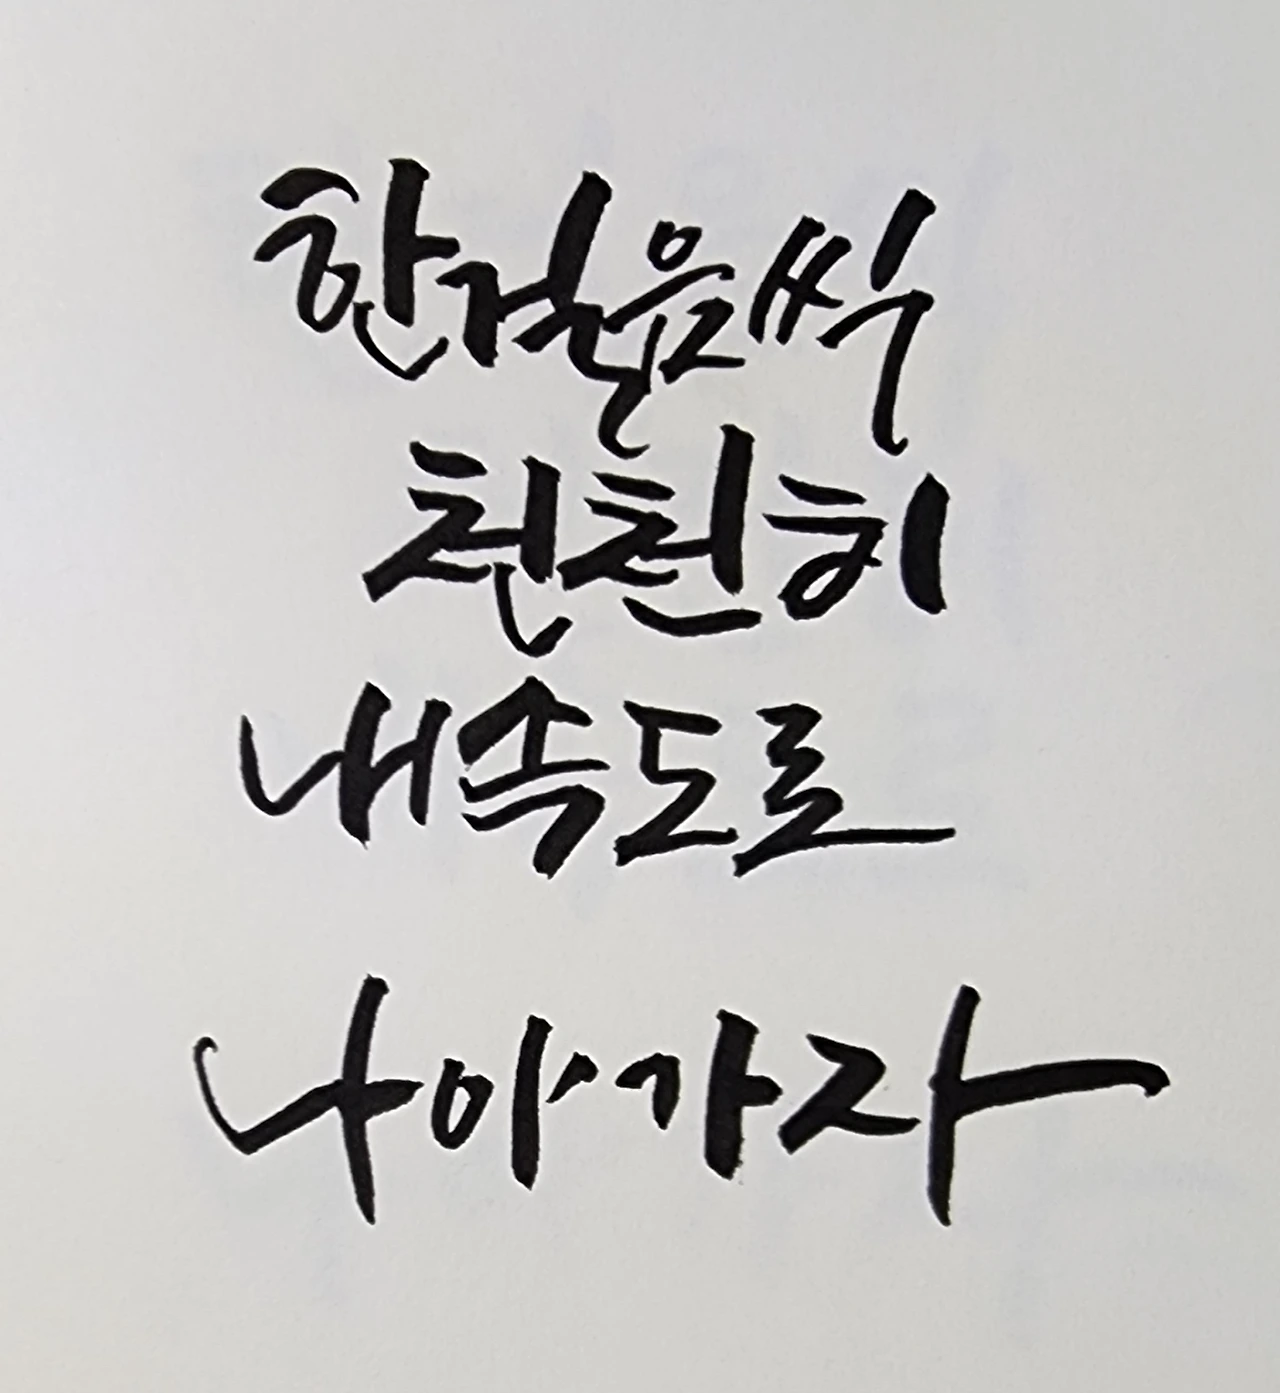 한걸음씩
천천히
내속도로
나아가자